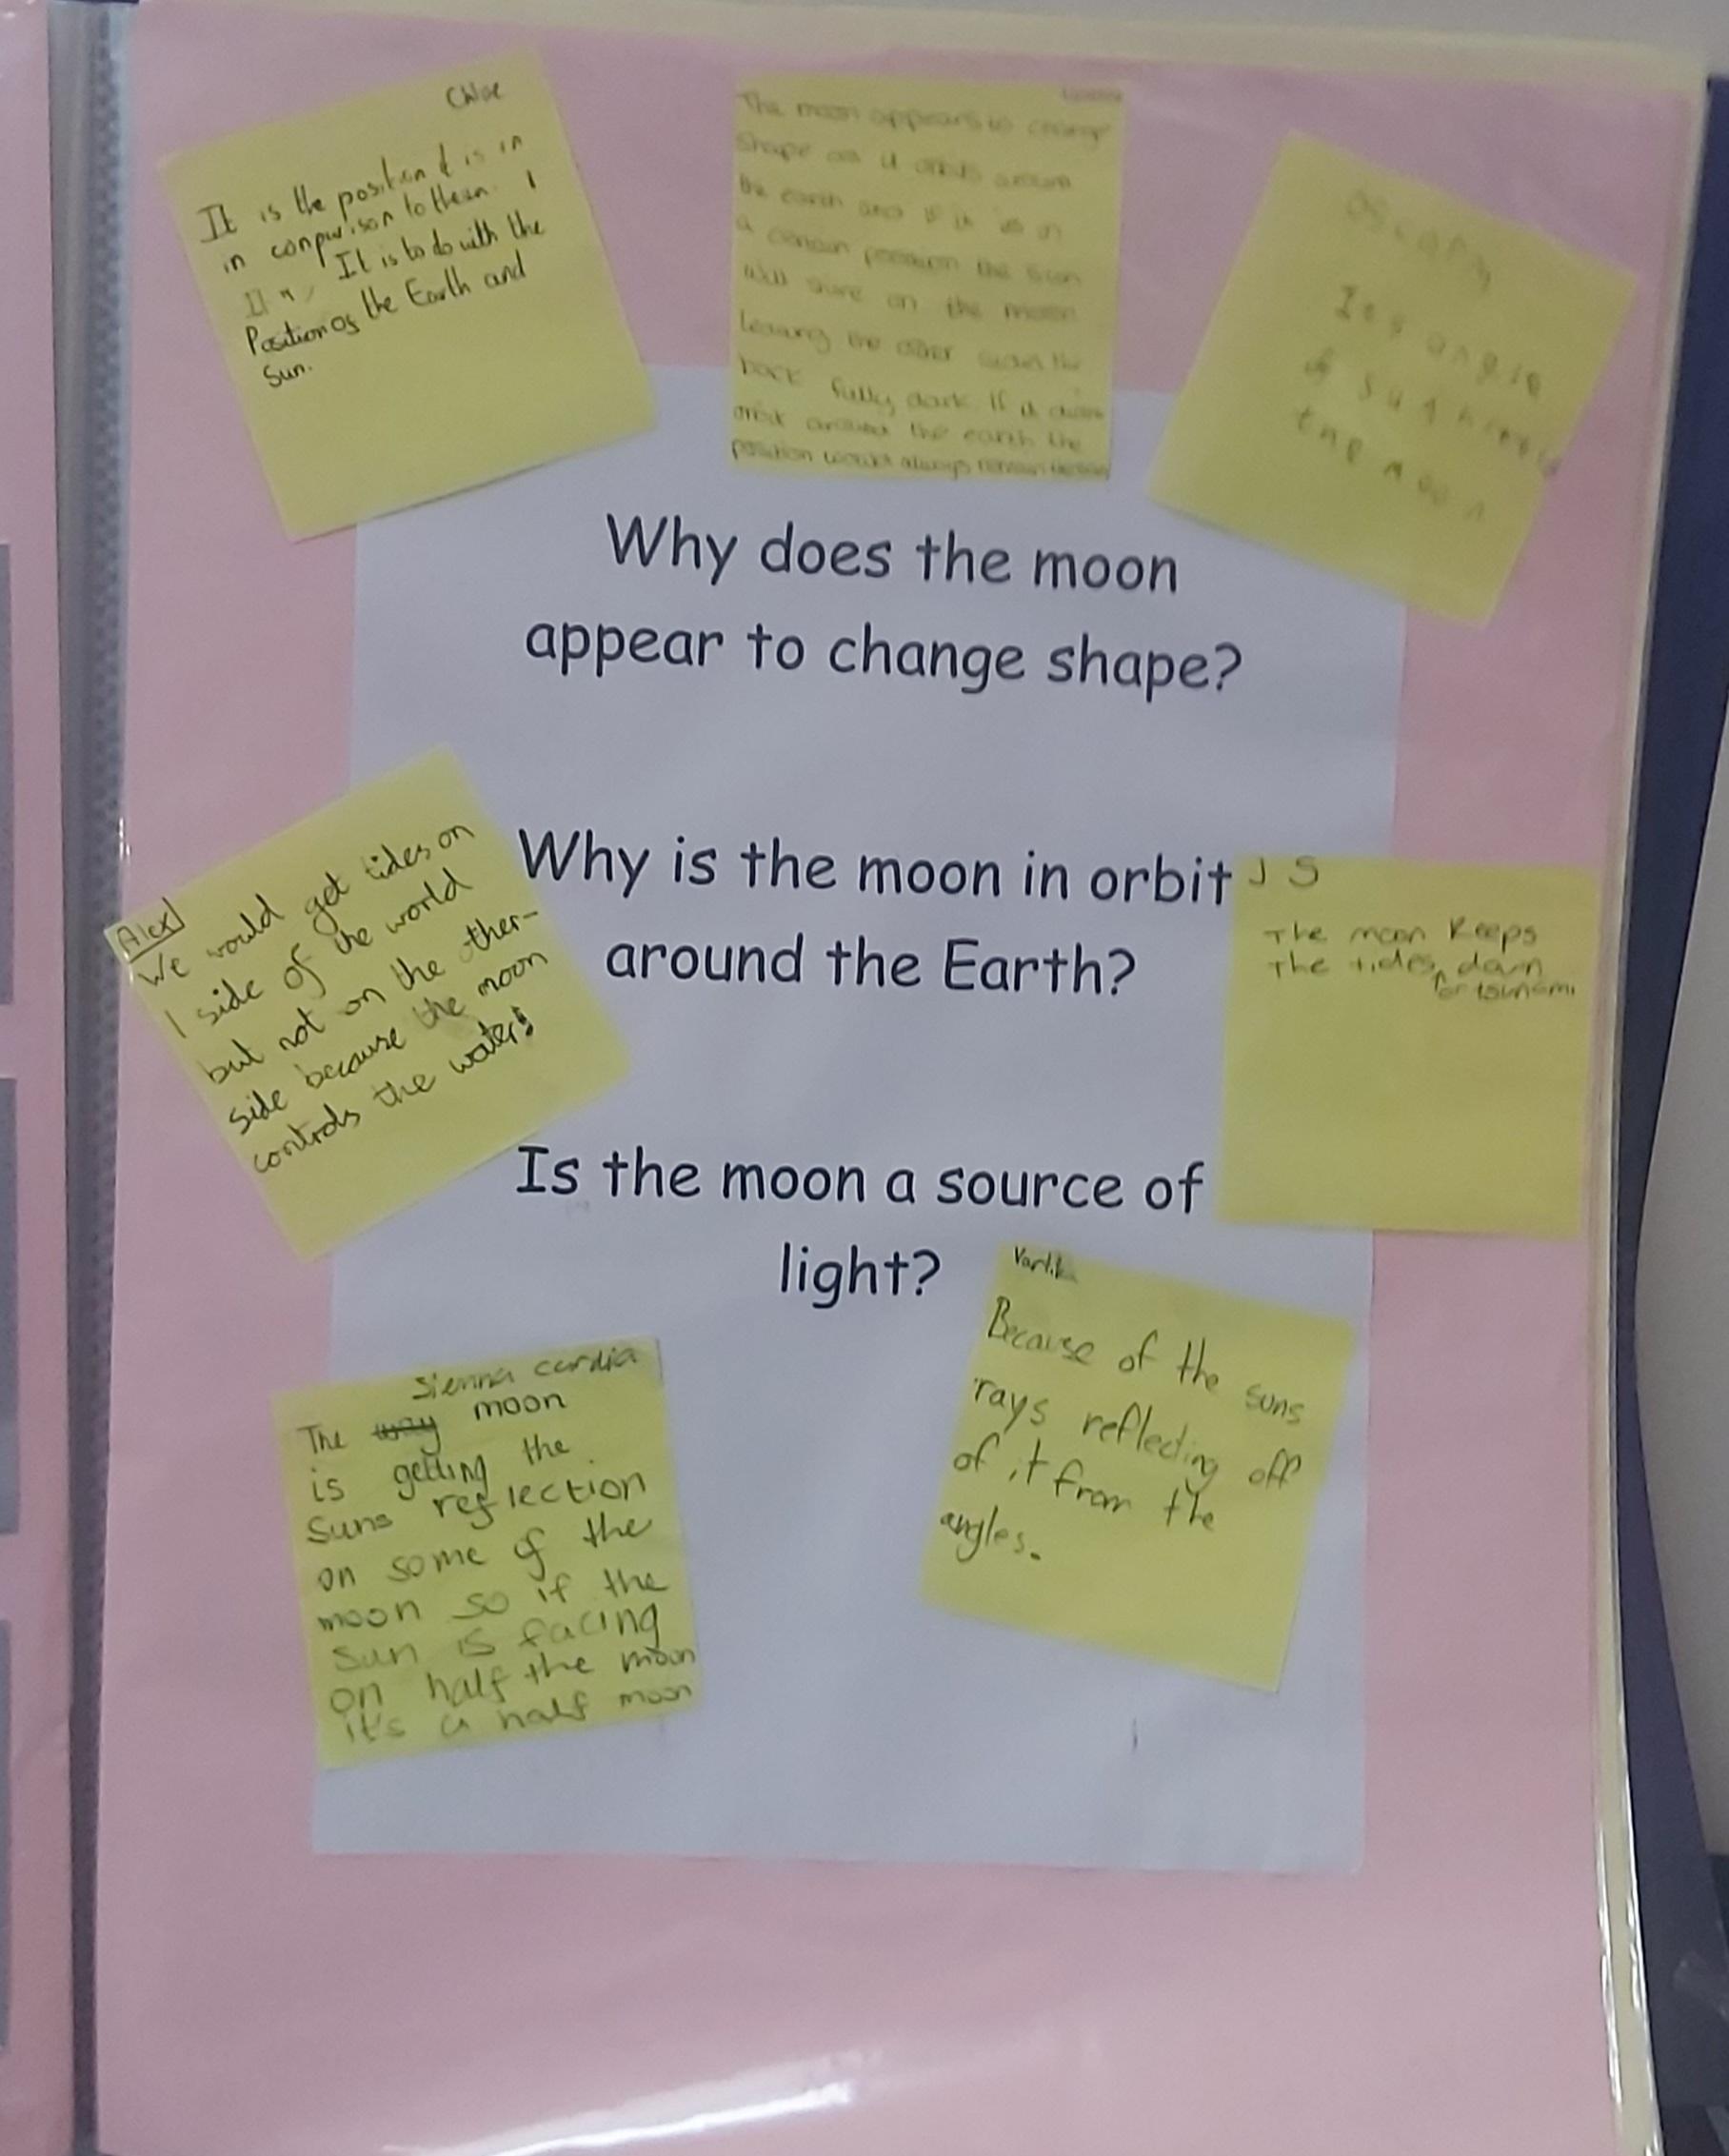 Chloe
It is the position it is in
in conpurison to them.
It is to do with the
Position os the Earth and
Sun.
The moon appears to change
Shape as it orbits around
the earth and if it is in
a certain position the sun
will shine on the moon
leaving the other side the
back fully dark. If it didnt
orbit around the earth the
position would always remain the
Its angle
of sun hitting
the moon
Why does the moon
appear to change shape?
Alex
We would get tides on
1 side of the world
but not on the other-
side because the moon
controls the water!
Why is the moon in orbit
around the Earth?
J S
The moon keeps
The tides down
for tsunami
Is the moon a source of
light?
Sienna cardia
The way moon
is getting the
Suns reflection
on some of the
moon so if the
sun is facing
on half the moon
it's a half moon
Because of the suns
rays reflecting off
of it from the
angles.